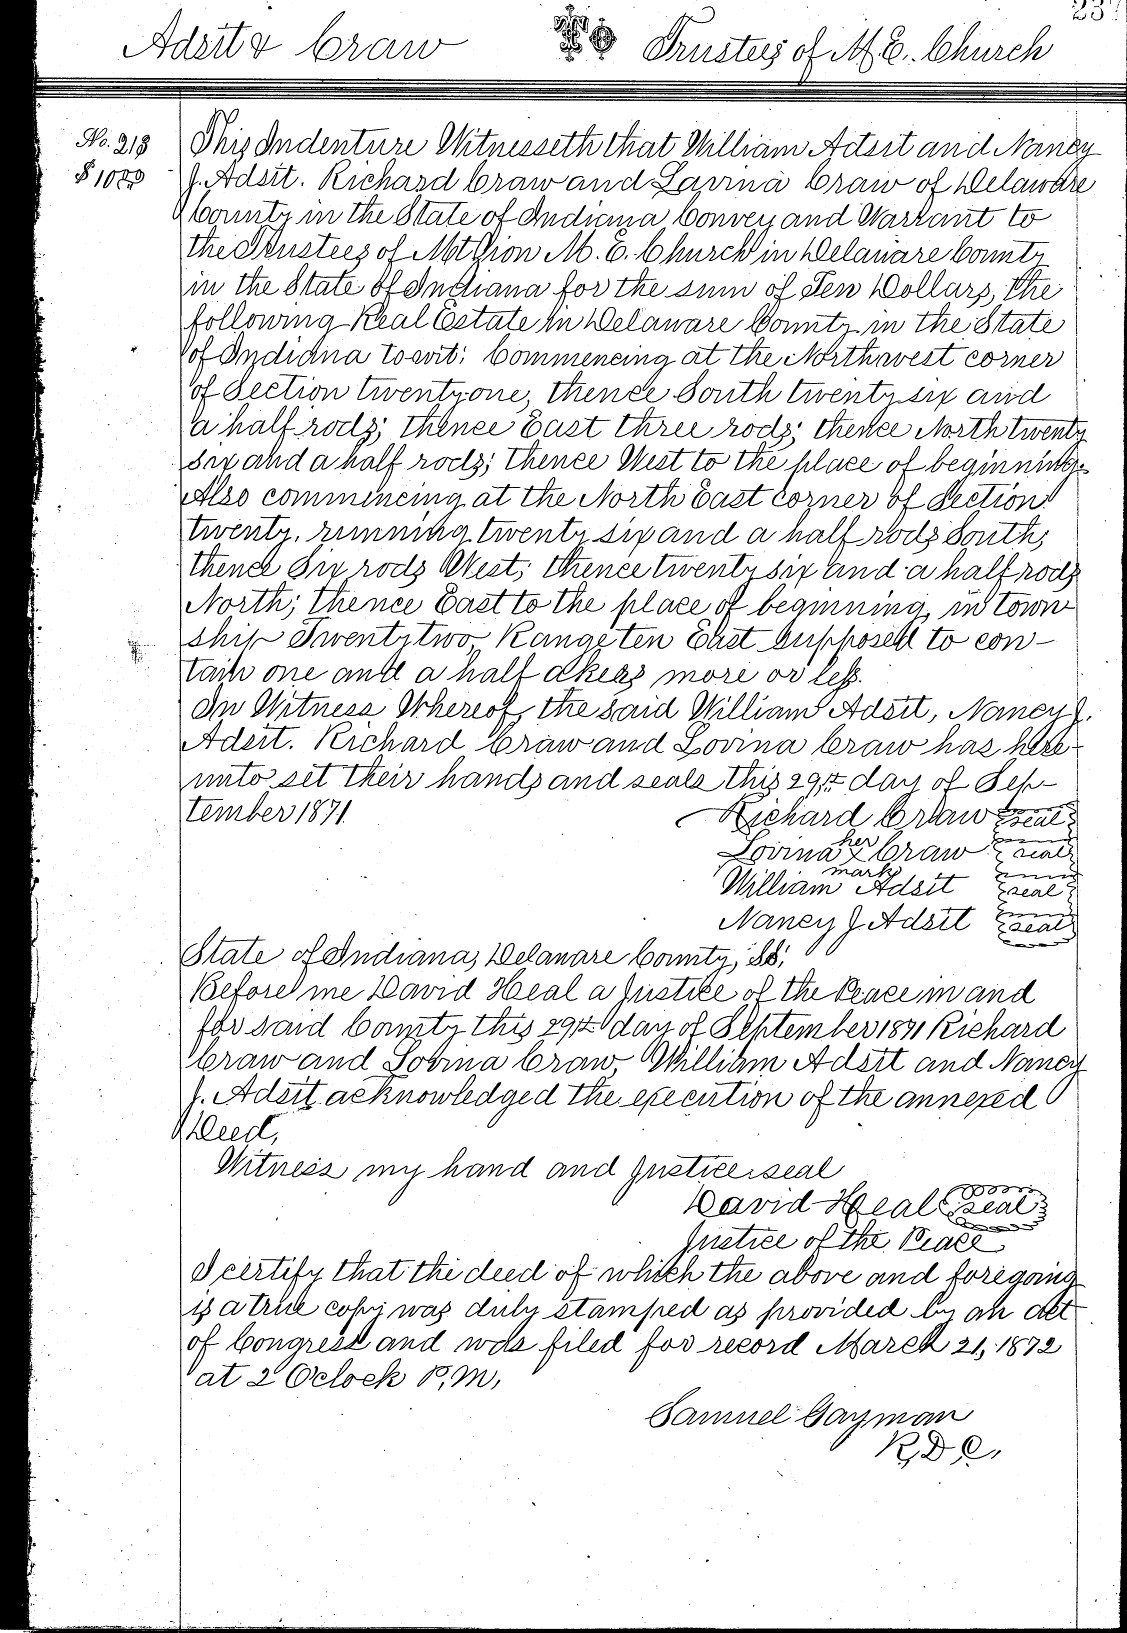 237
Adsit & Craw To Trustees of M. E. Church
No. 213
$10.00
This Indenture Witnesseth that William Adsit and Nancy
J. Adsit. Richard Craw and Lavina Craw of Delaware
County in the State of Indiana Convey and Warrant to
the Trustees of Mt Zion M. E. Church in Delaware County
in the State of Indiana for the sum of Ten Dollars, the
following Real Estate in Delaware County in the State
of Indiana to wit: Commencing at the Northwest corner
of Section twenty one, thence South twenty six and
a half rods; thence East three rods; thence North twenty
six and a half rods; thence West to the place of beginning.
Also commencing at the North East corner of Section
twenty, running twenty six and a half rods South;
thence Six rods West; thence twenty six and a half rods
North; thence East to the place of beginning, in town
ship Twenty two, Range ten East supposed to con-
tain one and a half akers more or less.
In Witness Whereof, the said William Adsit, Nancy J.
Adsit. Richard Craw and Lovina Craw has here-
unto set their hands and seals this 29th day of Sep-
tember 1871.
Richard Craw seal
Lovina her x mark Craw seal
William Adsit seal
Nancy J Adsit seal
State of Indiana, Delaware County, SS;
Before me David Heal a Justice of the Peace in and
for said County this 29th day of September 1871 Richard
Craw and Lovina Craw, William Adsit and Nancy
J. Adsit acknowledged the execution of the annexed
Deed,
Witness my hand and Justice seal
David Heal seal
Justice of the Peace
I certify that the deed of which the above and foregoing
is a true copy was duly stamped as provided by an act
of Congress and was filed for record March 21, 1872
at 2 Oclock P, M,
Samuel Gayman
R, D, C,